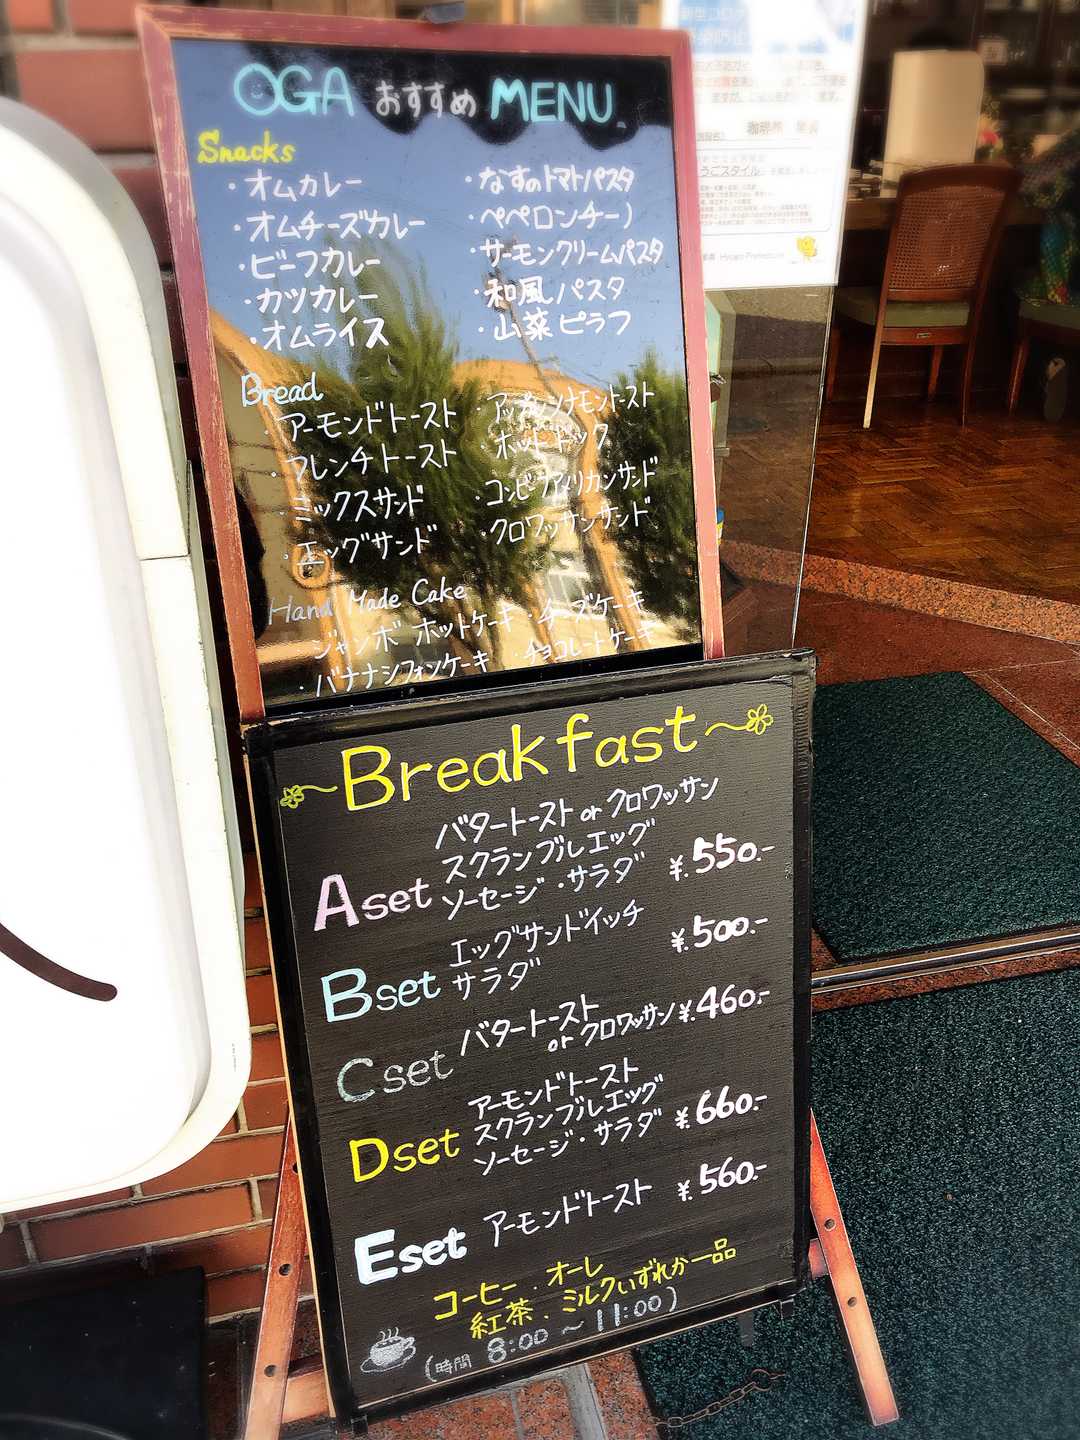 OGA おすすめ MENU
Snacks
・オムカレー
・オムチーズカレー
・ビーフカレー
・カツカレー
・オムライス
・なすのトマトパスタ
・ペペロンチーノ
・サーモンクリームパスタ
・和風パスタ
・山菜ピラフ
Bread
・アーモンドトースト
・フレンチトースト
・ミックスサンド
・エッグサンド
・アップルシナモントースト
・ホットドック
・コンビーフアメリカンサンド
・クロワッサンサンド
Hand Made Cake
・ジャンボホットケーキ
・チーズケーキ
・バナナシフォンケーキ
・チョコレートケーキ
~Breakfast~
Aset
バタートースト or クロワッサン
スクランブルエッグ
ソーセージ・サラダ
¥.550.-
Bset
エッグサンドイッチ
サラダ
¥.500.-
Cset
バタートースト
or クロワッサン
¥.460.-
Dset
アーモンドトースト
スクランブルエッグ
ソーセージ・サラダ
¥.660.-
Eset アーモンドトースト ¥.560.-
コーヒー.オーレ
紅茶.ミルクいずれか一品
(時間 8:00 ～ 11:00)
Hyogo Prefecture